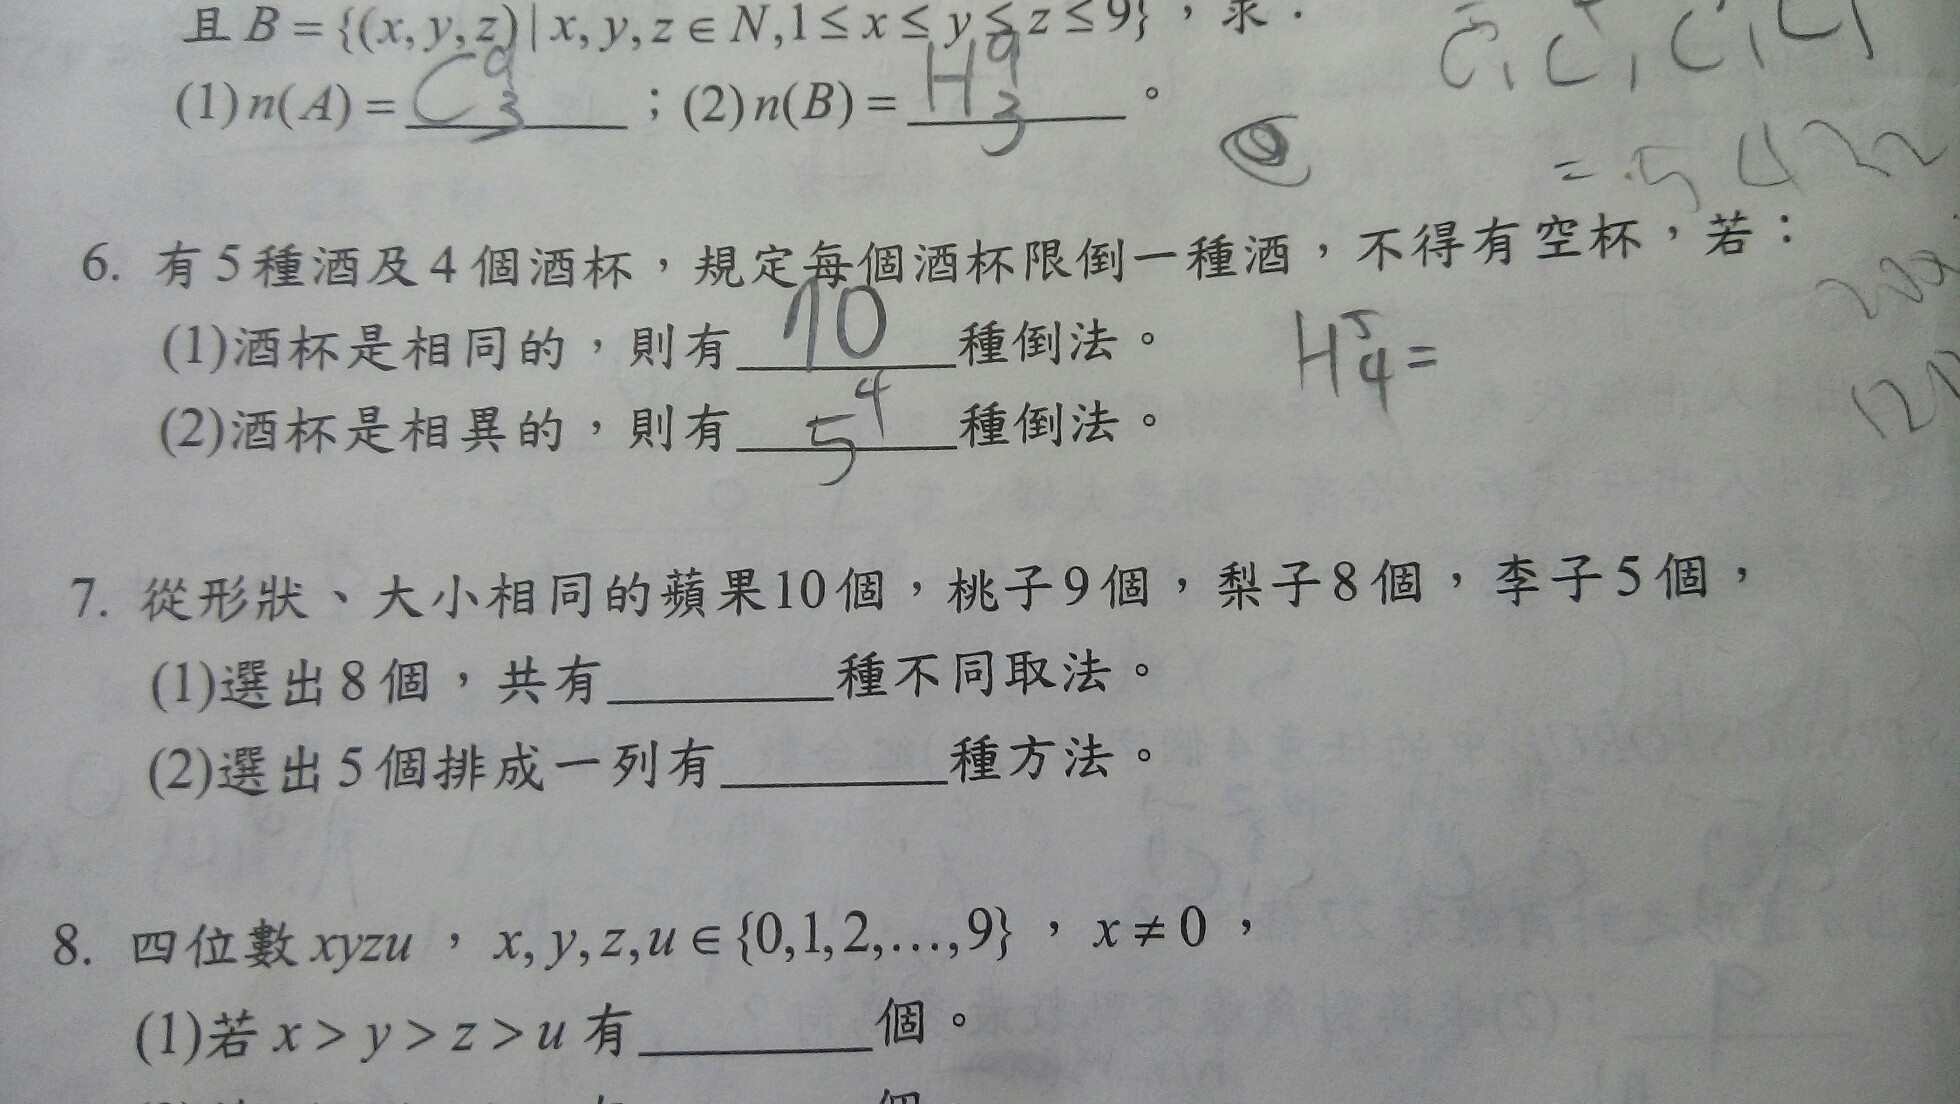 且 B = {(x, y, z) | x, y, z ∈ N, 1 ≤ x ≤ y ≤ z ≤ 9}，求：
(1) n(A) = C⁹₃ ；(2) n(B) = H⁹₃ 。
6. 有 5 種酒及 4 個酒杯，規定每個酒杯限倒一種酒，不得有空杯，若：
(1)酒杯是相同的，則有 70 種倒法。
H⁵₄ =
(2)酒杯是相異的，則有 5⁴ 種倒法。
7. 從形狀、大小相同的蘋果10個，桃子9個，梨子8個，李子5個，
(1)選出8個，共有________種不同取法。
(2)選出5個排成一列有________種方法。
8. 四位數 xyzu ， x, y, z, u ∈ {0,1,2,…,9} ， x ≠ 0 ，
(1)若 x > y > z > u 有________個。